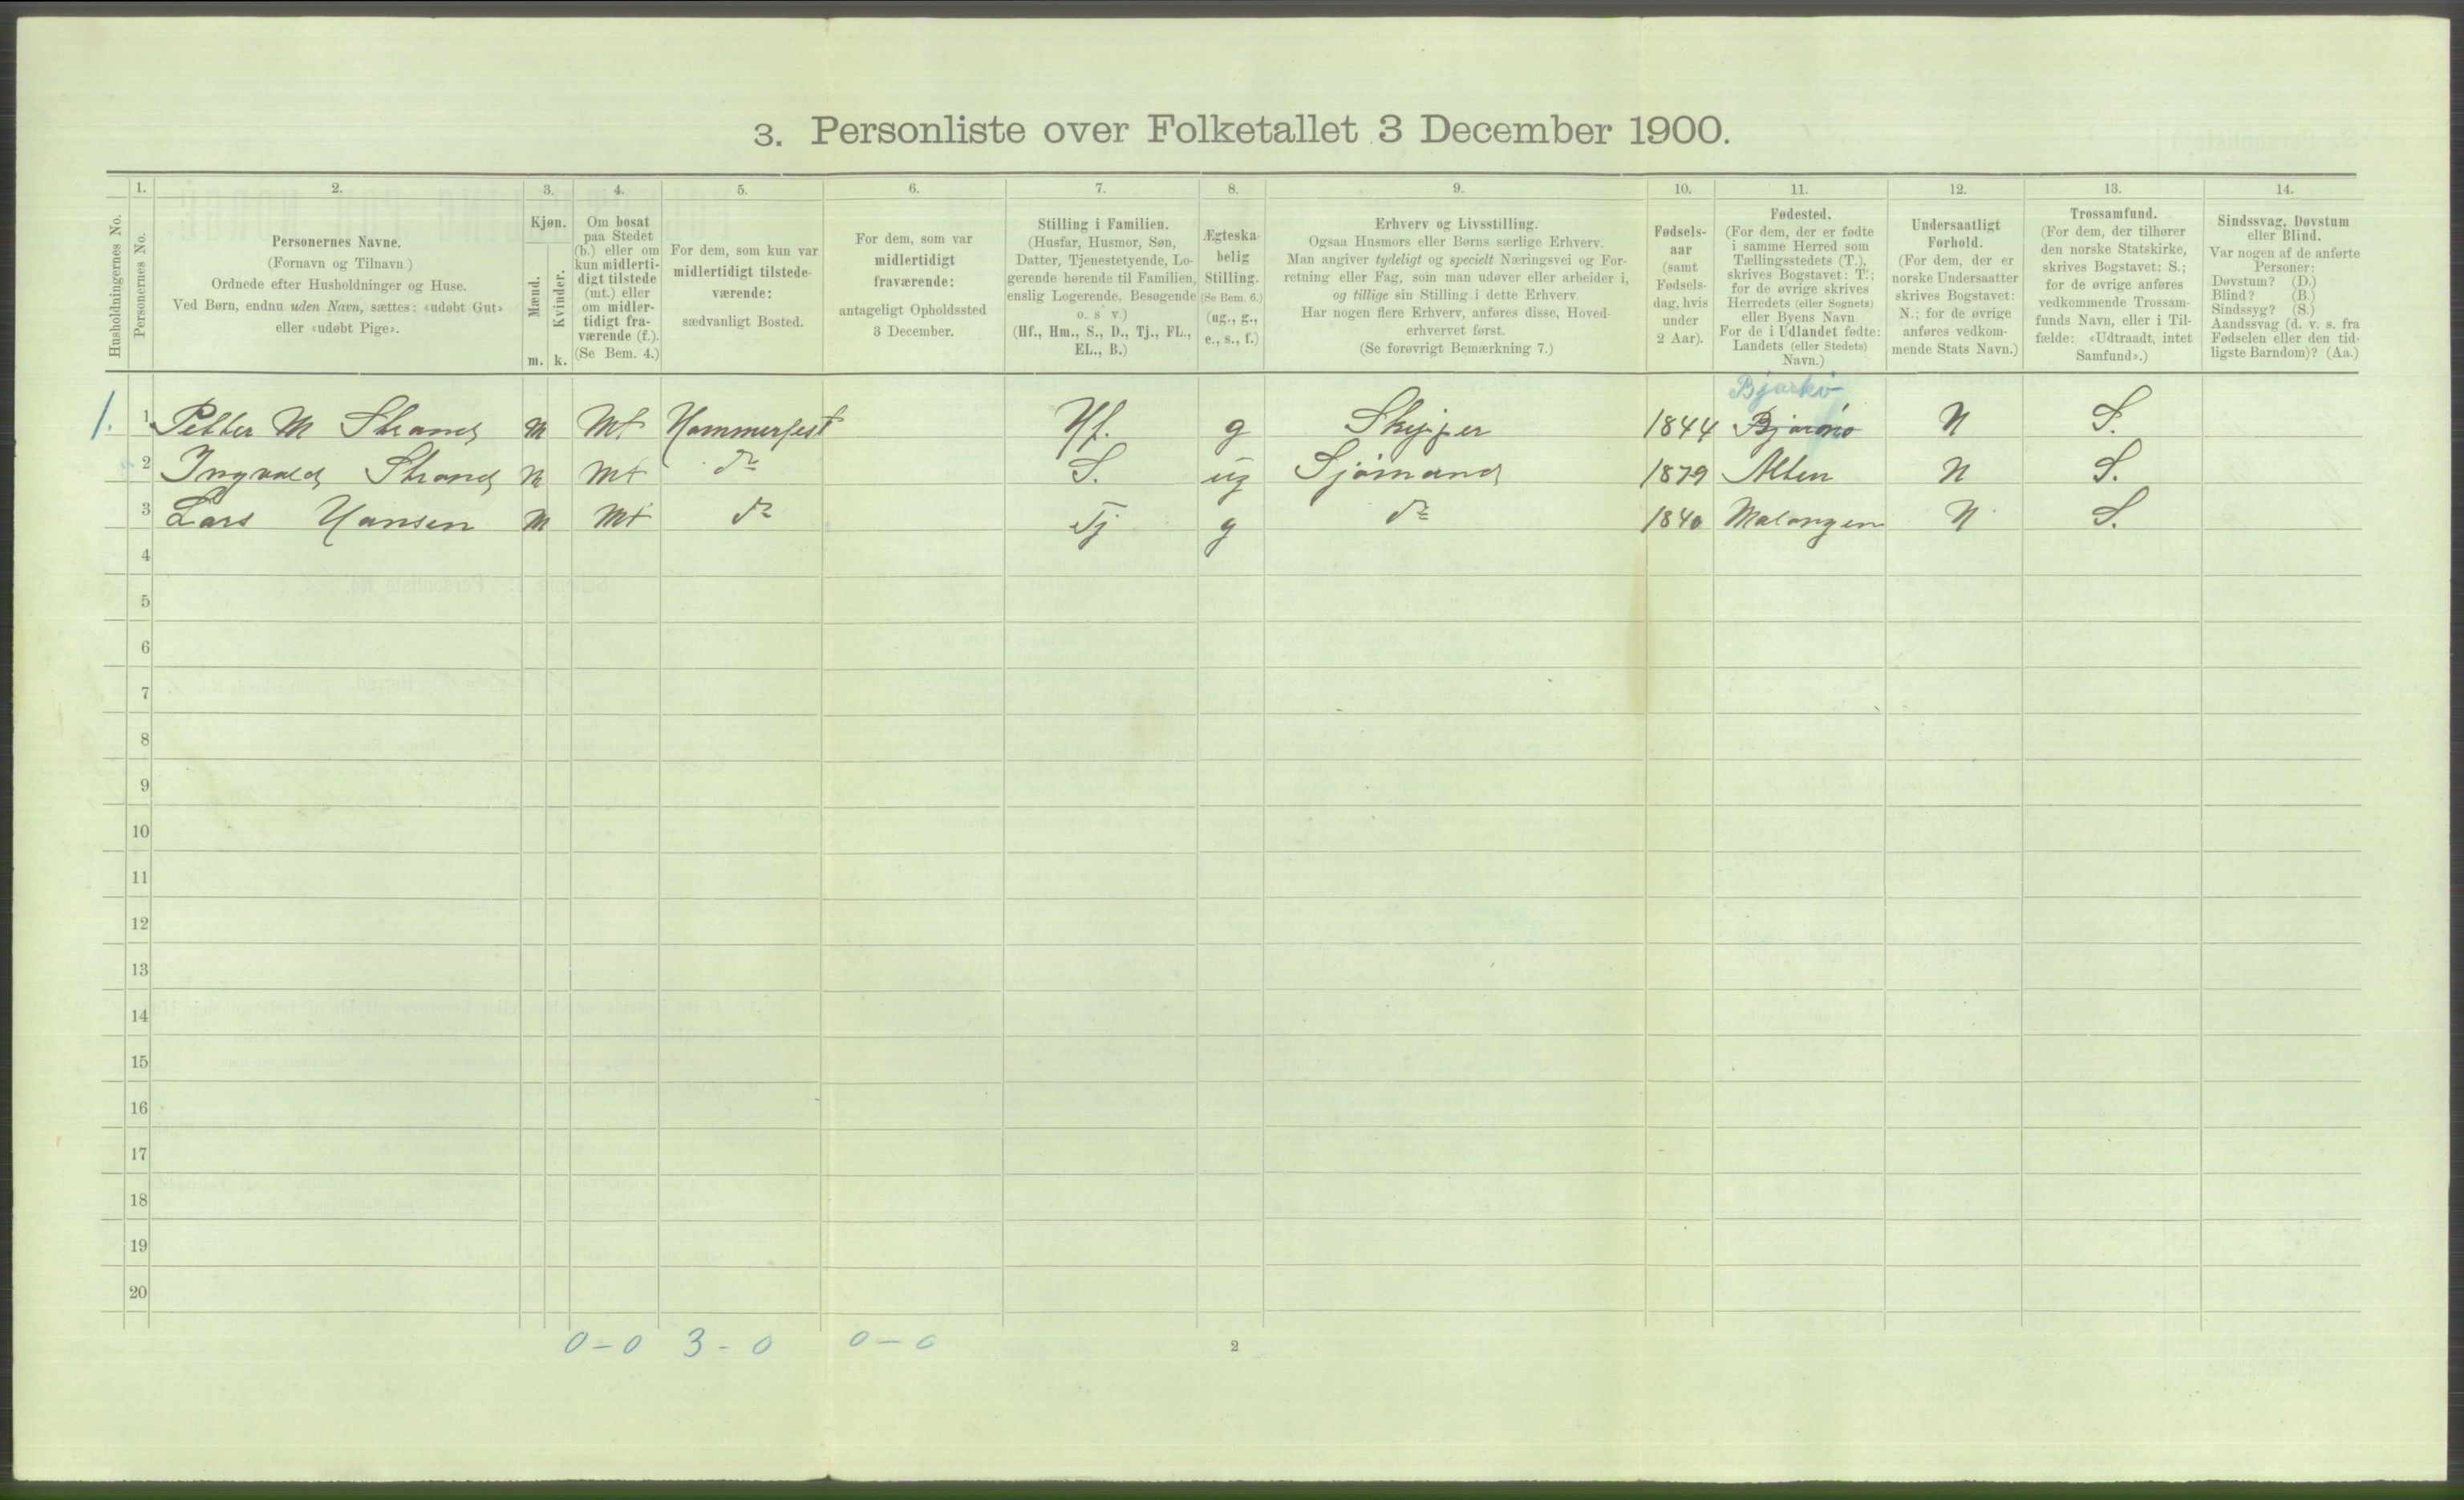 3. Personliste over Folketallet 3 December 1900.
1. 2. 3. 4. 5. 6. 7. 8. 9. 10. 11. 12. 13. 14.
Husholdningernes No.
Personernes No.
Personernes Navne.
(Fornavn og Tilnavn.)
Ordnede efter Husholdninger og Huse.
Ved Børn, endnu uden Navn, sættes: «udøbt Gut»
eller «udøbt Pige».
Kjøn.
Mænd.
Kvinder.
m. k.
Om bosat
paa Stedet
(b.) eller om
kun midlerti-
digt tilstede
(mt.) eller
om midler-
tidigt fra-
værende (f.).
(Se Bem. 4.)
For dem, som kun var
midlertidigt tilstede-
værende:
sædvanligt Bosted.
For dem, som var
midlertidigt
fraværende:
antageligt Opholdssted
3 December.
Stilling i Familien.
(Husfar, Husmor, Søn,
Datter, Tjenestetyende, Lo-
gerende hørende til Familien,
enslig Logerende, Besøgende
o. s v.)
(Hf., Hm., S., D., Tj., FL.,
EL., B.)
Ægteska-
belig
Stilling.
(Se Bem. 6.)
(ug., g.,
e., s., f.)
Erhverv og Livsstilling.
Ogsaa Husmors eller Børns særlige Erhverv.
Man angiver tydeligt og specielt Næringsvei og For-
retning eller Fag, som man udøver eller arbeider i,
og tillige sin Stilling i dette Erhverv.
Har nogen flere Erhverv, anføres disse, Hoved-
erhvervet først.
(Se forøvrigt Bemærkning 7.)
Fødsels-
aar
(samt
Fødsels-
dag, hvis
under
2 Aar).
Fødested.
(For dem, der er fødte
i samme Herred som
Tællingsstedets (T.),
skrives Bogstavet: T.;
for de øvrige skrives
Herredets (eller Sognets)
eller Byens Navn
For de i Udlandet fødte:
Landets (eller Stedets)
Navn.)
Undersaatligt
Forhold.
(For dem, der er
norske Undersaatter
skrives Bogstavet:
N.; for de øvrige
anføres vedkom-
mende Stats Navn.)
Trossamfund.
(For dem, der tilhører
den norske Statskirke,
skrives Bogstavet: S.;
for de øvrige anføres
vedkommende Trossam-
funds Navn, eller i Til-
fælde: «Udtraadt, intet
Samfund».)
Sindssvag, Døvstum
eller Blind.
Var nogen af de anførte
Personer:
Døvstum? (D.)
Blind? (B.)
Sindssyg? (S.)
Aandssvag (d. v. s. fra
Fødselen eller den tid-
ligste Barndom)? (Aa.)
Bjarkø
1. 1 Petter M Strand m Mt Hammerfest Hf. g Skipper 1844 N S.
2 Ingvald Strand m Mt do S. ug Sjømand 1879 Alten N S.
3 Lars Hansen m Mt do Tj g do 1840 Malangen N S.
4
5
6
7
8
9
10
11
12
13
14
15
16
17
18
19
20
0-0 3-0 0-0
2